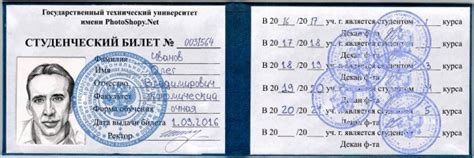 Государственный технический университет
имени PhotoShopy.Net
СТУДЕНЧЕСКИЙ БИЛЕТ № 0034564
Фамилия Иванов
Имя Олег
Отчество Владимирович
Факультет Экономический
Форма обучения очная
Дата выдачи билета 1.09.2016
Ректор
В 2016 / 2017 уч. г. является студентом 1 курса
Декан ф-та
В 20 / 2018 уч. г. является студентом курса
Декан ф-та
В 2018 / 20 уч. г. является студентом курса
Декан ф-та
В 2019 / 2020 уч. г. является студентом курса
Декан ф-та
В 2020 / 20 уч. г. является студентом курса
Декан ф-та
В 20 / 20 уч. г. является студентом курса
Декан ф-та